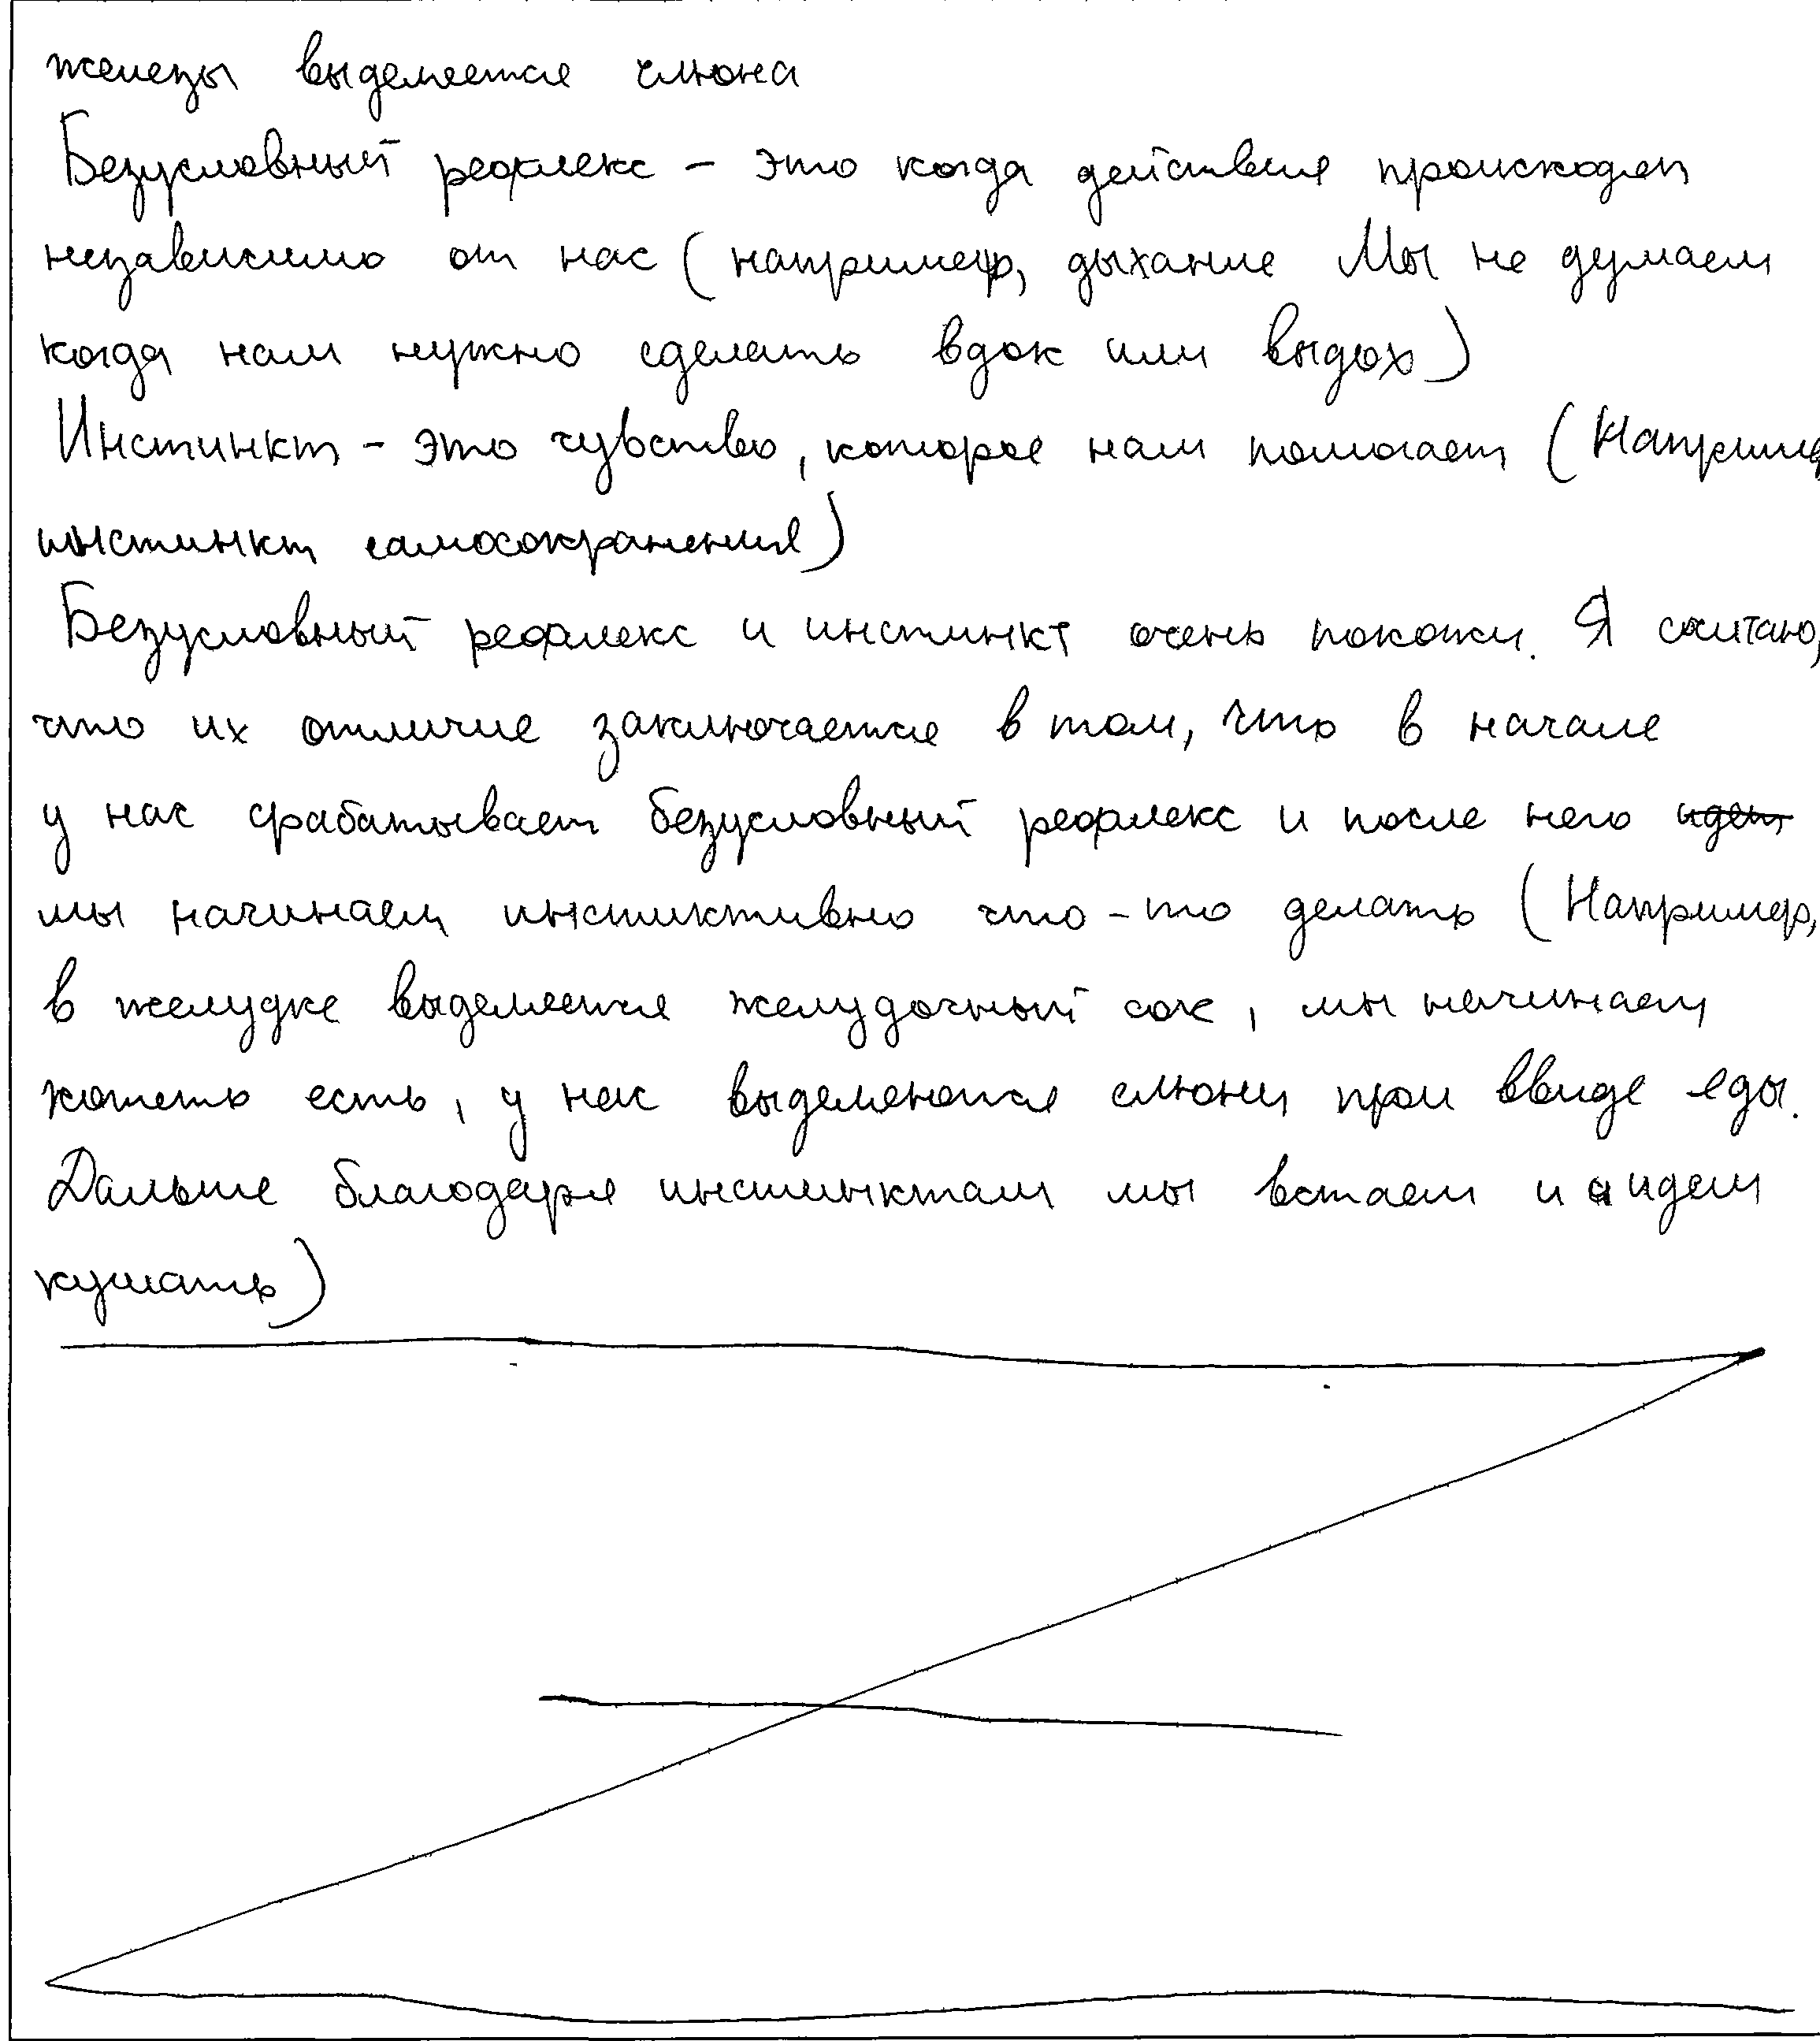 железы выделяется слюна
Безусловный рефлекс - это когда действие происходят
независимо от нас (например, дыхание Мы не думаем
когда нам нужно сделать вдох или выдох)
Инстинкт - это чувство, которое нам помогает (Например
инстинкт самосохранения)
Безусловный рефлекс и инстинкт очень похожи. Я считаю,
что их отличие заключается в том, что в начале
у нас срабатывает безусловный рефлекс и после него идет
мы начинаем инстиктивно что-то делать (Например,
в желудке выделяется желудочный сок, мы начинаем
хотеть есть, у нас выделяются слюни при ввиде еды.
Дальше благодаря инстинктам мы встаем и идем
кушать)